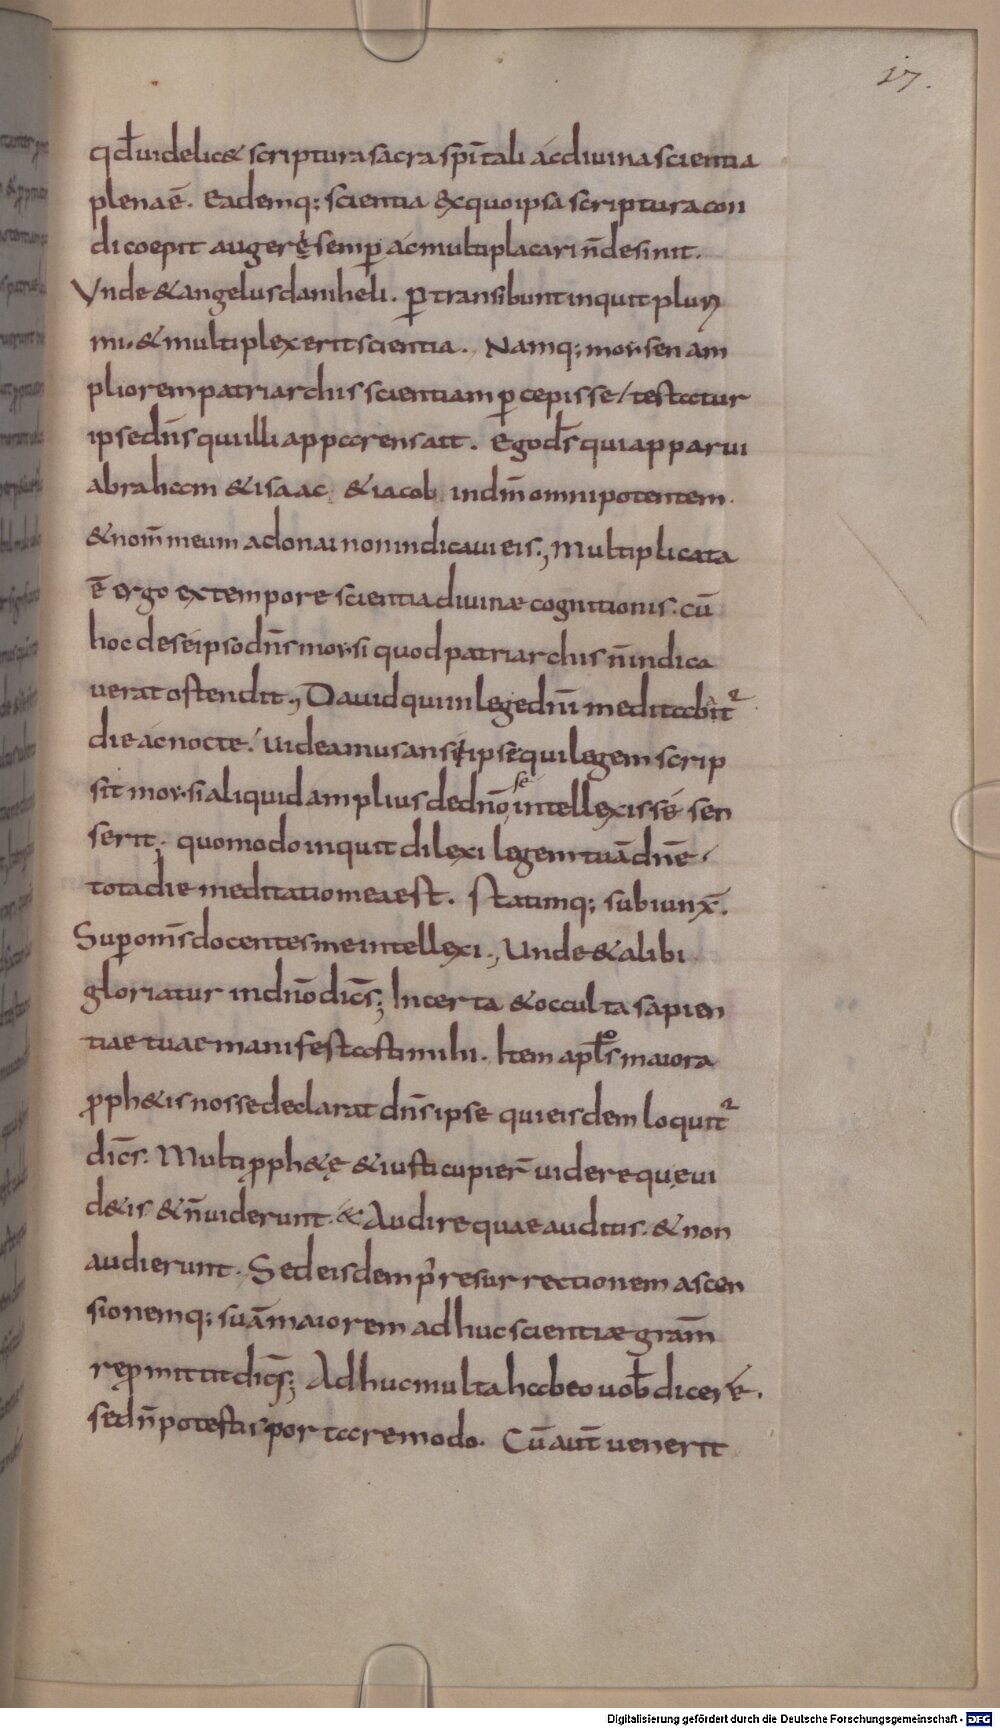 17.
qđ uidelic& scriptura sacra sp̄itali ac diuina scientia
plena ē. Eademq; scientia exquo ipsa scriptura con
di coepit augerẹ semp̄ ac multiplacari n̄ desinit.
Vnde & angelus daniheli. ꝑtransibunt inquit pluri
mi. & multiplex erit scientia. Namq; moysen am
pliorem patriarchis scientiam ꝑcepisse / testatur
ipse dn̄s qui illi apparens ait. Ego dś qui apparui
abraham & isaac & iacob in dm̄ omnipotentem.
& nom̄ meum adonai non indicaui eis., Multiplicata
ē ergo ex tempore scientia diuinæ cognitionis. cū
hoc de se ipso dn̄s moysi quod patriarchis n̄ indica
uerat ostendit., Dauid qui in lege dn̄i meditabit᷑
die ac nocte. uideamus an se ipse qui legem scrip
sit moysi aliquid amplius de dn̄o se intellexisse sen
serit; quomodo inquit dilexi legem tuā dn̄e.
tota die meditatio mea est. Statimq; subiunx̄.
Suꝑ om̄s docentes me intellexi., Unde & alibi
gloriatur in dn̄o dicēs; Incerta & occulta sapien
tiae tuae manifestasti mihi. Item apłos maiora
ꝓph&is nosse declarat dn̄s ipse qui eisdem loquit᷑
dicēs. Multi ꝓph&ę & iusti cupier̄ uidere quę ui
d&is & n̄ uiderunt. & Audire quae auditis. & non
audierunt. Sed eisdem p̄ resurrectionem ascen
sionemq; suā maiorem adhuc scientiæ gr̄am
reꝓmittit dicēs; Adhuc multa habeo uob̄ dicere.
sed n̄ potestis portare modo. Cū aūt uenerit
Digitalisierung gefördert durch die Deutsche Forschungsgemeinschaft - DFG